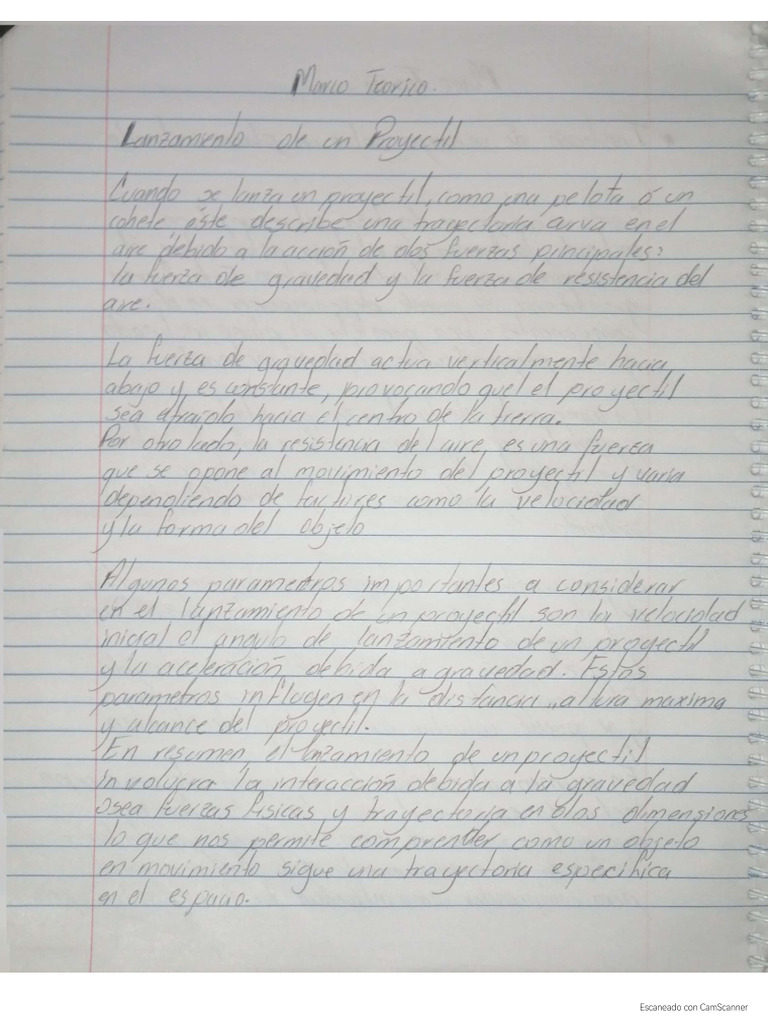 Marco Teorico.
Lanzamiento de un Proyectil
Cuando se lanza un proyectil, como una pelota ó un
cohete éste describe una trayectoria curva en el
aire debido a la acción de dos fuerzas principales:
la fuerza de gravedad y la fuerza de resistencia del
aire.
La fuerza de gravedad actua verticalmente hacia
abajo y es constante, provocando que el proyectil
sea atraido hacia el centro de la tierra.
Por otro lado, la resistencia del aire, es una fuerza
que se opone al movimiento del proyectil y varia
dependiendo de factores como la velocidad
y la forma del objeto
Algunos parametros importantes a considerar
en el lanzamiento de un proyectil son la velocidad
inicial el angulo de lanzamiento de un proyectil
y la aceleración debida a gravedad. Estos
parametros influyen en la distancia, altura maxima
y alcance del proyectil.
En resumen, el lanzamiento de un proyectil
involucra la interacción debida a la gravedad
osea fuerzas fisicas y trayectoria en dos dimensiones
lo que nos permite comprender como un objeto
en movimiento sigue una trayectoria especifica
en el espacio.
Escaneado con CamScanner